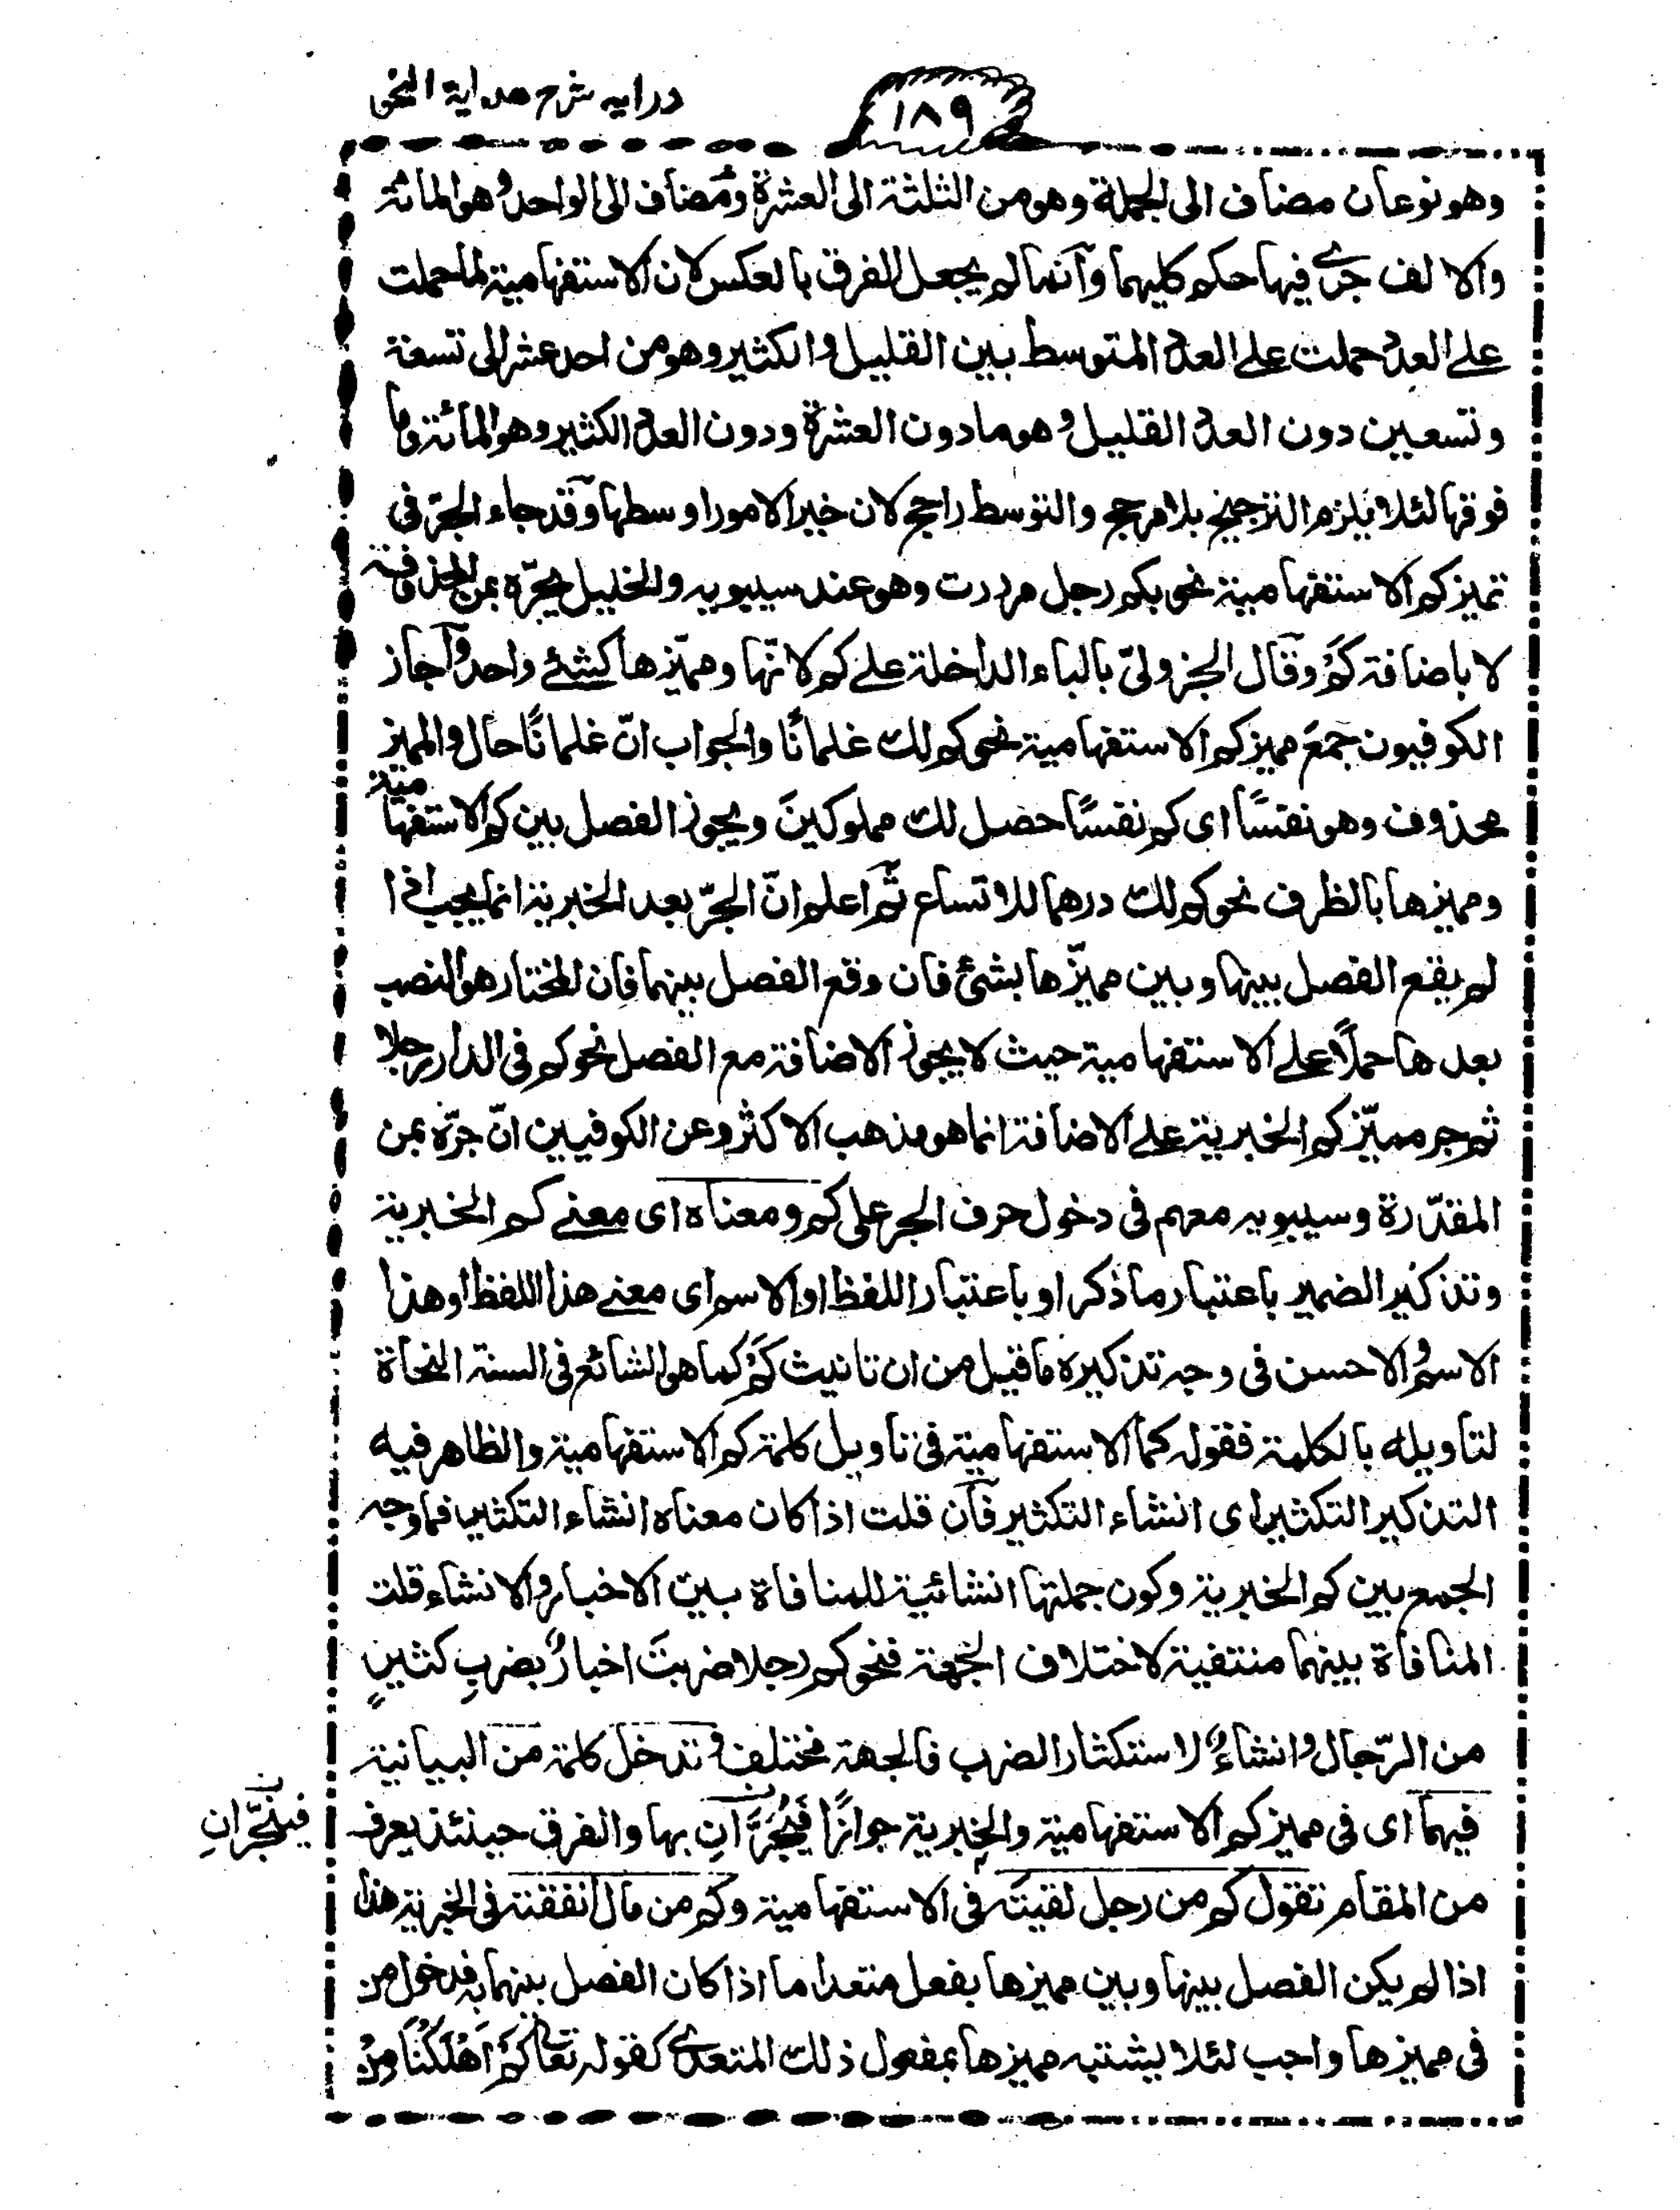 ١٨٩
درایه شرح هدایة النحو
وهو نوعان مضاف الى الجملة وهو من الثلثة الى العشرة ومضاف الى الواحد وهو المائة
والالف جرى فيها حكم كليهما وآنما لم يجعل الفرق بالعكس لان الاستفهامية لما حملت
على العدد حملت على العدد المتوسط بين القليل والكثير وهو من احد عشر الى تسعة
وتسعين دون العدد القليل وهو ما دون العشرة ودون العدد الكثير وهو المائة وما
فوقها لئلا يلزم الترجيح بلا مرجح والتوسط راجح لان خير الامور اوسطها وقد جاء الجرّ فى
تميز كم الاستفهامية نحو بكم رجل مررت وهو عند سيبويه والخليل يجرّه بمن المحذوفة
لا باضافة كم وقال الجزولىّ بالباء الداخلة على كم لانّها ومميّزها كشئ واحد وآجاز
الكوفيون جمع مميز كم الاستفهامية نحو كم لك غلمانًا والجواب انّ غلمانًا حال والمميز
محذوف وهو نفسًا اى كم نفسًا حصل لك مملوكينَ ويجوز الفصل بين كم الاستفهامية
ومميزها بالظرف نحو كم لك درهما للاتساع ثم اعلم انّ الجرّ بعد الخبرية انما يجب اذا
لم يقع الفصل بينها وبين مميّزها بشئ فان وقع الفصل بينهما فان المختار هو النصب
بعدها حملًا على الاستفهامية حيث لا يجوز الاضافة مع الفصل نحو كم فى الدار رجلا
ثم جر مميّز كم الخبرية على الاضافة انما هو مذهب الاكثر وعن الكوفيين انّ جرّه بمن
المقدّرة وسيبويه معهم فى دخول حرف الجر على كم ومعناه اى معنى كم الخبرية
وتذكير الضمير باعتبار ما ذكر او باعتبار اللفظ او الاسم اى معنى هذا اللفظ او هذا
الاسم والاحسن فى وجه تذكيره ما قيل من ان تانيث كم كما هو الشائع فى السنة النحاة
لتاويله بالكلمة فقوله كما الاستفهامية فى تاويل كلمة كم الاستفهامية والظاهر فيه
التذكير التكثير اى انشاء التكثير فآن قلت اذا كان معناه انشاء التكثير فما وجه
الجمع بين كم الخبرية وكون جملتها انشائية للمنافاة بين الاخبار والانشاء قلت
المنافاة بينهما منتفية لاختلاف الجهة فنحو كم رجلا ضربتَ اخبارٌ بضربِ كثيرٍ
من الرّجال وانشاءٌ لاستكثار الضرب فالجهة مختلف وتدخل كلمة من البيانية
فيهما اى فى مميز كم الاستفهامية والخبرية جوازًا فَيُجَرَّانِ بها والفرق حينئذ يعرف
فينجرّانِ
من المقام تقول كم من رجل لقيتَه فى الاستفهامية وكم من مال انفقته فى الخبرية هذا
اذا لم يكن الفصل بينها وبين مميزها بفعل متعد اما اذا كان الفصل بينهما به فدخول من
فى مميزها واجب لئلا يشتبه مميزها بمفعول ذلك المتعدى كقوله تعالى كَمْ اَهْلَكْنَا مِنْ